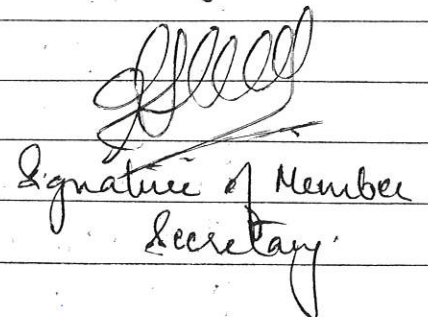 Signature of Member
Secretary.